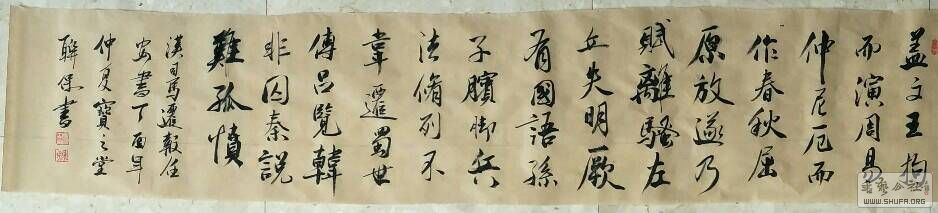 盖文王拘
而演周易
仲尼厄而
作春秋屈
原放逐乃
赋離騷左
丘失明厥
有國語孫
子臏脚兵
法脩列不
韋遷蜀世
傳吕覽韓
非囚秦説
難孤憤
漢司馬遷報任
安書丁酉年
仲夏寶之堂
聯保書
WWW.SHUFA.ORG